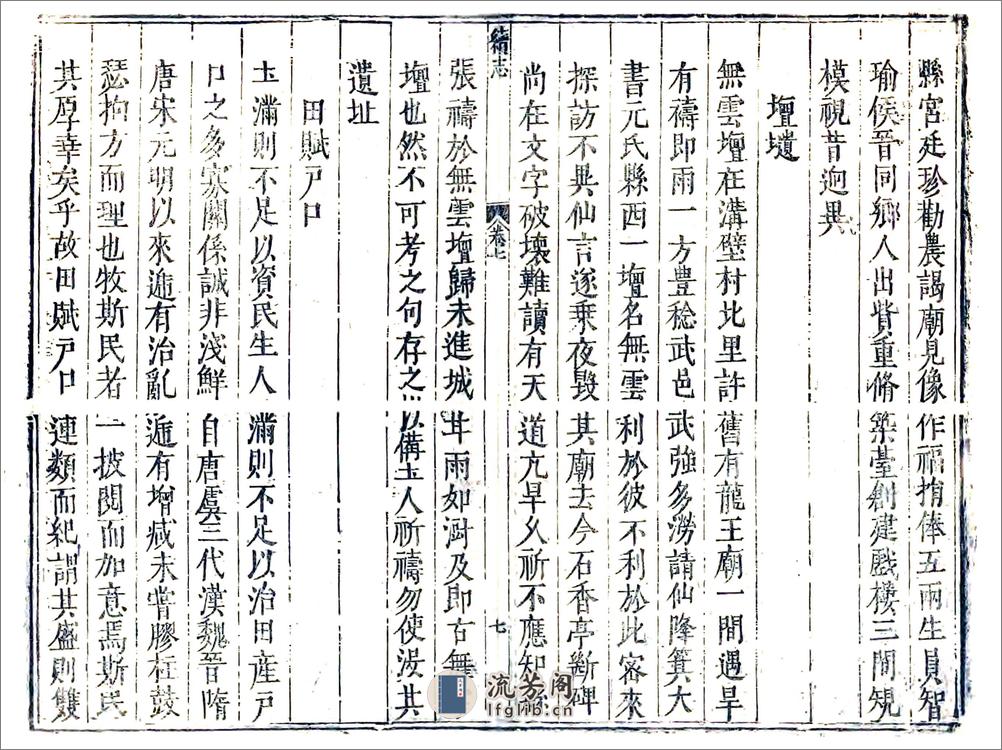 縣宮廷珍勸農謁廟見像作福捐俸五兩生員智
瑜侯晉同鄉人出貲重修築臺創建戲樓三間規
模視昔迥異
壇壝
無雲壇在溝壁村北里許舊有龍王廟一間遇旱
有禱即雨一方豊稔武邑武強多澇請仙降箕大
書元氏縣西一壇名無雲利於彼不利於此客來
探訪不異仙言遂乘夜毀其廟去今石香亭斷碑
尚在文字破壞難讀有天道亢旱久祈不應知
續志
卷七
七
張禱於無雲壇歸未進城耳雨如澍及即古無
壇也然不可考之句存之以備土人祈禱勿使沒其
遺址
田賦戸口
土滿則不足以資民生人滿則不足以治田産戸
口之多寡關係誠非淺鮮自唐虞三代漢魏晉隋
唐宋元明以來遞有治亂遞有增減未嘗膠柱鼓
瑟拘方而理也牧斯民者一披閱而加意焉斯民
其厚幸矣乎故田賦戸口連類而紀謂其盛則雙
流芳阁
lfglib.cn